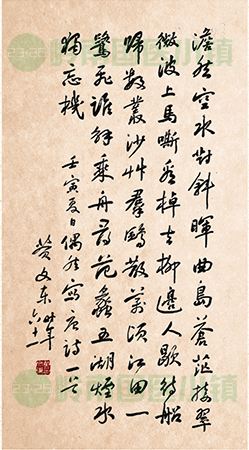 澹然空水對斜暉曲島蒼茫接翠
微波上馬嘶看棹去柳邊人歇待船
歸數叢沙艸羣鷗散萬頃江田一
鷺飛誰解乘舟尋范蠡五湖煙水
獨忘機 壬寅夏日偶然寫唐詩一首
文東時年六十